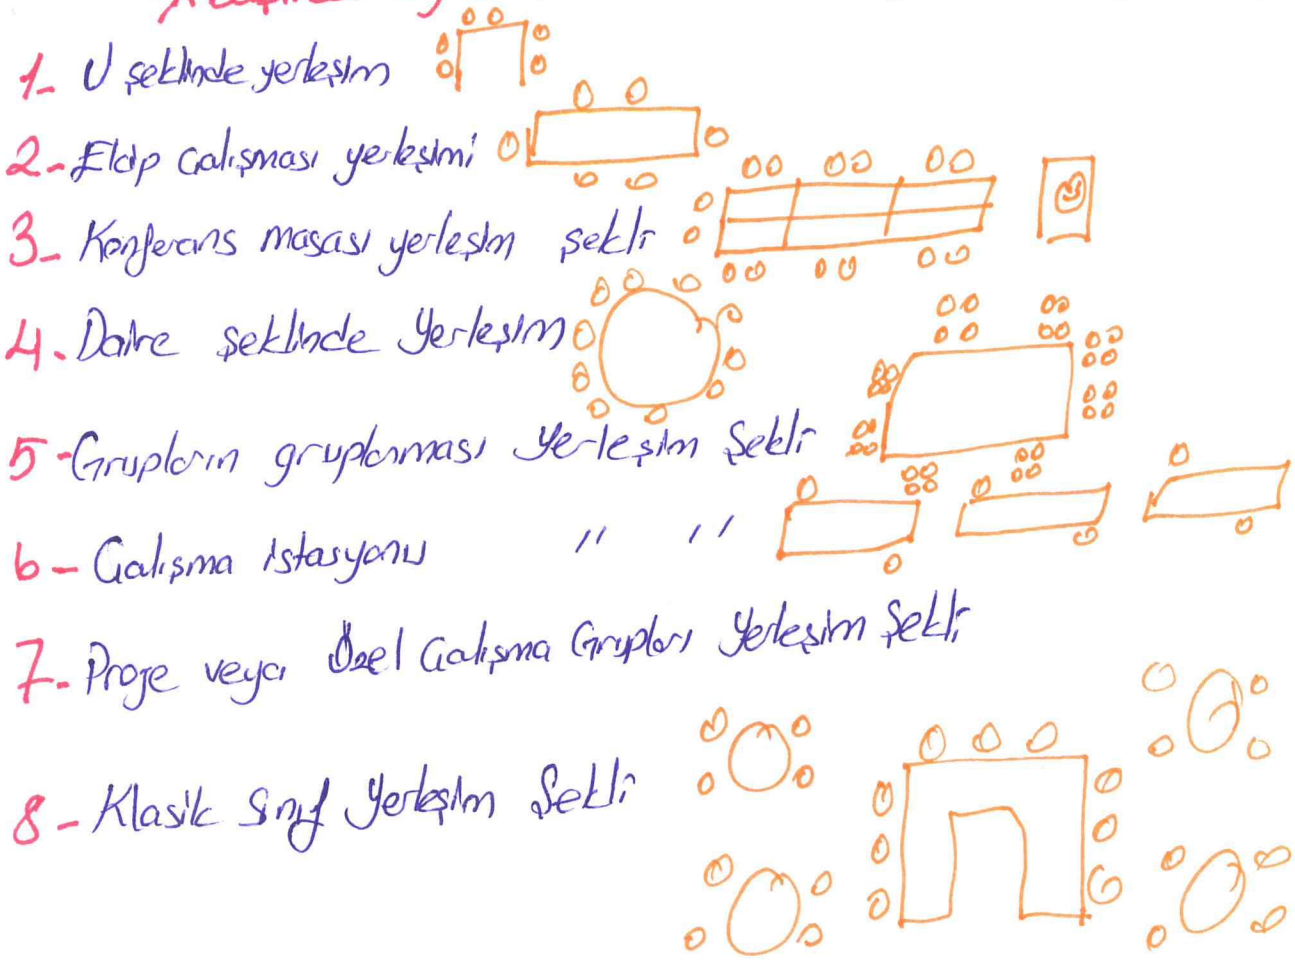 1- U şeklinde yerleşim
2- Ekip Çalışması yerleşimi
3- Konferans masası yerleşim şekli
4. Daire şeklinde Yerleşim
5- Grupların gruplanması Yerleşim Şekli
6- Çalışma istasyonu " "
7- Proje veya Özel Çalışma Grupları Yerleşim Şekli
8- Klasik Sınıf Yerleşim Şekli